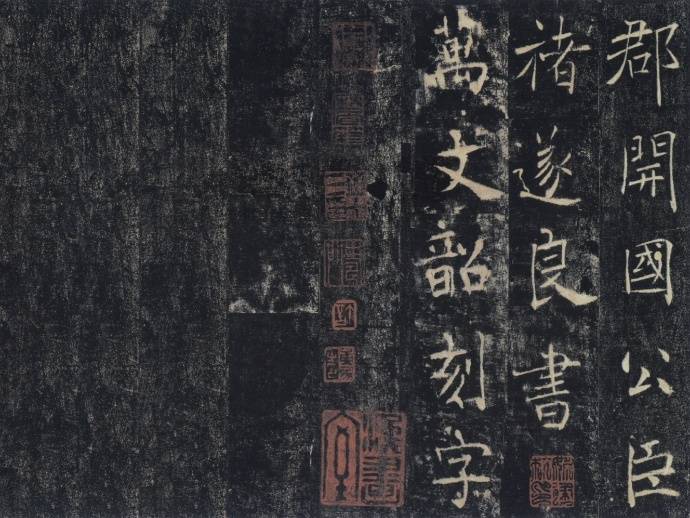 郡開國公臣
禇遂良書
萬文韶刻字